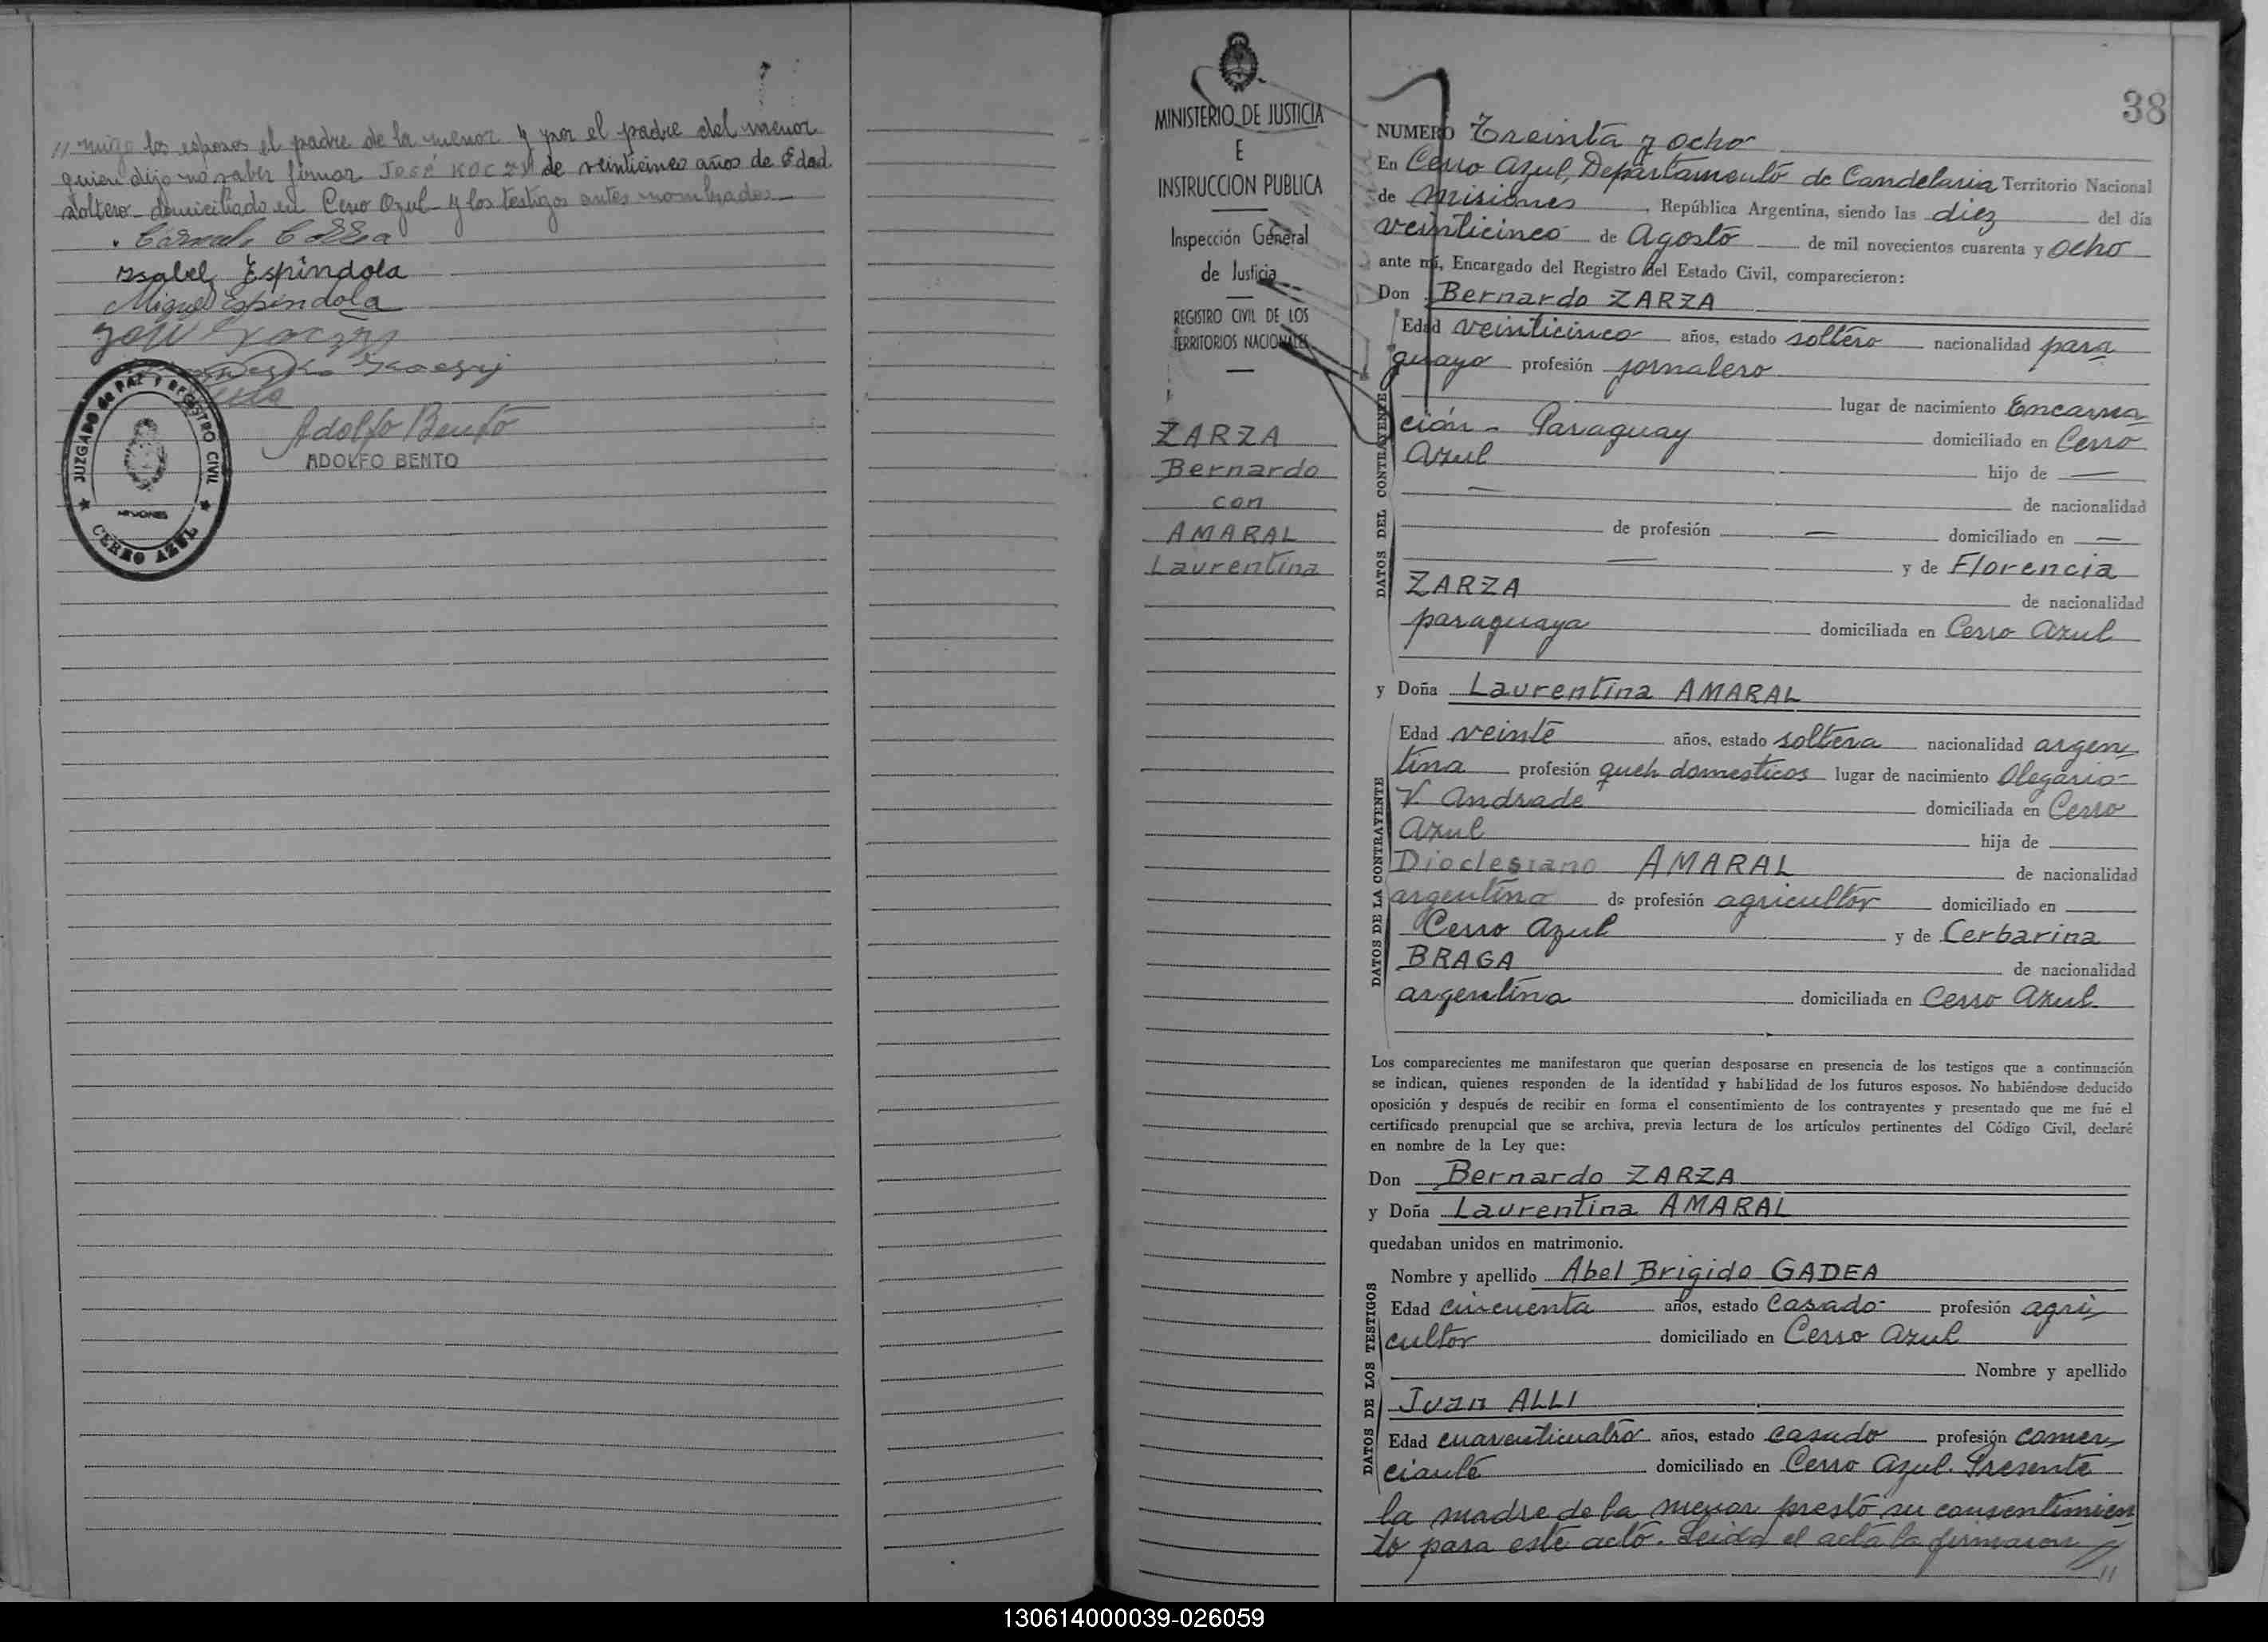 // migo los esposos el padre de la menor y por el padre del menor
quien dijo no saber firmar JOSÉ KOCZY de veinticinco años de Edad
soltero domiciliado en Cerro Azul y los testigos antes nombrados
Isabel Espíndola
Miguel Espindola
Adolfo Bento
ADOLFO BENTO
JUZGADO de PAZ Y REGISTRO CIVIL
MISIONES
CERRO AZUL
MINISTERIO DE JUSTICIA
E
INSTRUCCION PUBLICA
Inspección General
de Justicia
REGISTRO CIVIL DE LOS
TERRITORIOS NACIONALES
ZARZA
Bernardo
con
AMARAL
Laurentina
38
NUMERO Treinta y ocho
En Cerro Azul, Departamento de Candelaria Territorio Nacional
de Misiones, República Argentina, siendo las diez del día
veinticinco de Agosto de mil novecientos cuarenta y ocho
ante mí, Encargado del Registro del Estado Civil, comparecieron:
Don Bernardo ZARZA
DATOS DEL CONTRAYENTE
Edad veinticinco años, estado soltero nacionalidad para
guayo profesión jornalero
lugar de nacimiento Encarna
ción - Paraguay domiciliado en Cerro
Azul hijo de —
— de nacionalidad
de profesión — domiciliado en —
— y de Florencia
ZARZA de nacionalidad
paraguaya domiciliada en Cerro Azul
y Doña Laurentina AMARAL
DATOS DE LA CONTRAYENTE
Edad veinte años, estado soltera nacionalidad argen
tina profesión queh domesticos lugar de nacimiento Olegario
V. Andrade domiciliada en Cerro
Azul hija de
Dioclesiano AMARAL de nacionalidad
argentino de profesión agricultor domiciliado en
Cerro Azul y de Cerbarina
BRAGA de nacionalidad
argentina domiciliada en Cerro Azul
Los comparecientes me manifestaron que querían desposarse en presencia de los testigos que a continuación
se indican, quienes responden de la identidad y habilidad de los futuros esposos. No habiéndose deducido
oposición y después de recibir en forma el consentimiento de los contrayentes y presentado que me fué el
certificado prenupcial que se archiva, previa lectura de los artículos pertinentes del Código Civil, declaré
en nombre de la Ley que:
Don Bernardo ZARZA
y Doña Laurentina AMARAL
quedaban unidos en matrimonio.
DATOS DE LOS TESTIGOS
Nombre y apellido Abel Brigido GADEA
Edad cincuenta años, estado Casado profesión agri
cultor domiciliado en Cerro Azul
Nombre y apellido
Juan ALLI
Edad cuarenticuatro años, estado casado profesión comer
ciante domiciliado en Cerro Azul. Presente
la madre de la menor prestó su consentimien
to para este acto. Leida el acta la firmaron //
130614000039-026059